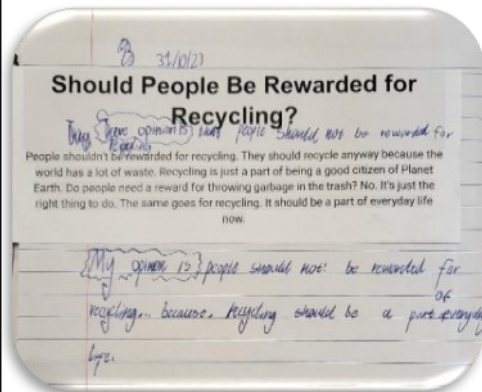 31/10/23
Should People Be Rewarded for
Recycling?
{ opinion is} that people should not be rewarded for
recycling
People shouldn't be rewarded for recycling. They should recycle anyway because the
world has a lot of waste. Recycling is just a part of being a good citizen of Planet
Earth. Do people need a reward for throwing garbage in the trash? No. It's just the
right thing to do. The same goes for recycling. It should be a part of everyday life
now.
{My opinion is} people should not be rewarded for
recycling... because. recycling should be a part of everyday
life.